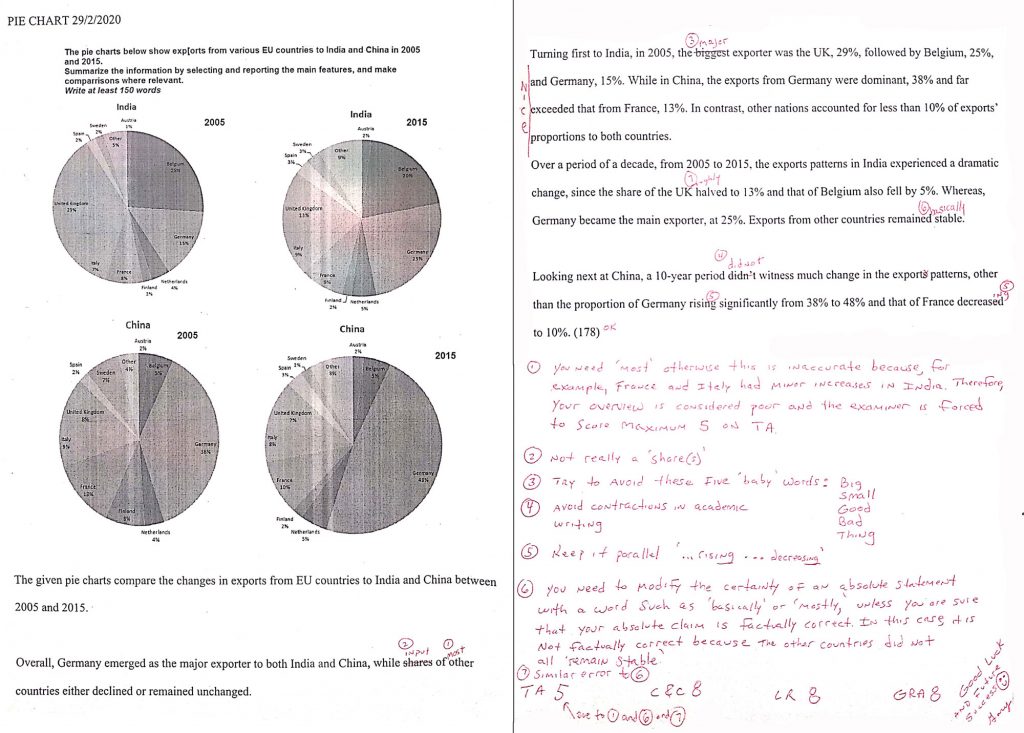 PIE CHART 29/2/2020
The pie charts below show exp[orts from various EU countries to India and China in 2005
and 2015.
Summarize the information by selecting and reporting the main features, and make
comparisons where relevant.
Write at least 150 words
India
2005
Austria
1%
Sweden
2%
Spain
2%
Other
5%
Belgium
25%
United Kingdom
29%
Germany
15%
Italy
7%
France
8%
Finland
3%
Netherlands
4%
India
2015
Austria
2%
Sweden
3%
Spain
3%
Other
9%
Belgium
20%
United Kingdom
13%
Germany
25%
Italy
9%
France
9%
Finland
2%
Netherlands
5%
China
2005
Austria
2%
Spain
2%
Sweden
7%
Other
4%
Belgium
5%
United Kingdom
8%
Germany
38%
Italy
9%
France
13%
Finland
Netherlands
4%
China
2015
Austria
2%
Sweden
Spain
3%
Other
Belgium
5%
United Kingdom
7%
Germany
48%
Italy
8%
France
10%
Finland
2%
Netherlands
5%
The given pie charts compare the changes in exports from EU countries to India and China between
2005 and 2015.
② input ① most
Overall, Germany emerged as the major exporter to both India and China, while shares of other
countries either declined or remained unchanged.
③ major
Turning first to India, in 2005, the biggest exporter was the UK, 29%, followed by Belgium, 25%,
and Germany, 15%. While in China, the exports from Germany were dominant, 38% and far
Nice
exceeded that from France, 13%. In contrast, other nations accounted for less than 10% of exports'
proportions to both countries.
Over a period of a decade, from 2005 to 2015, the exports patterns in India experienced a dramatic
⑦ roughly
change, since the share of the UK halved to 13% and that of Belgium also fell by 5%. Whereas,
⑥ basically
Germany became the main exporter, at 25%. Exports from other countries remained stable.
④ did not
Looking next at China, a 10-year period didn't witness much change in the exports patterns, other
⑤ ⑤ ing
than the proportion of Germany rising significantly from 38% to 48% and that of France decreased
to 10%. (178) OK
① You need 'most' otherwise this is inaccurate because, for
example, France and Italy had minor increases in India. Therefore,
your overview is considered poor and the examiner is forced
to score maximum 5 on TA.
② Not really a 'share(s)'
③ Try to avoid these five 'baby' words: Big
Small
④ Avoid contractions in academic Good
writing Bad
Thing
⑤ Keep it parallel '...rising ... decreasing'
⑥ You need to modify the certainty of an absolute statement
with a word such as 'basically' or 'mostly,' unless you are sure
that your absolute claim is factually correct. In this case it is
not factually correct because the other countries did not
all 'remain stable'.
⑦ Similar error to ⑥
TA 5 C&C 8 LR 8 GRA 8
due to ① and ⑥ and ⑦
Good Luck
and Future
Success